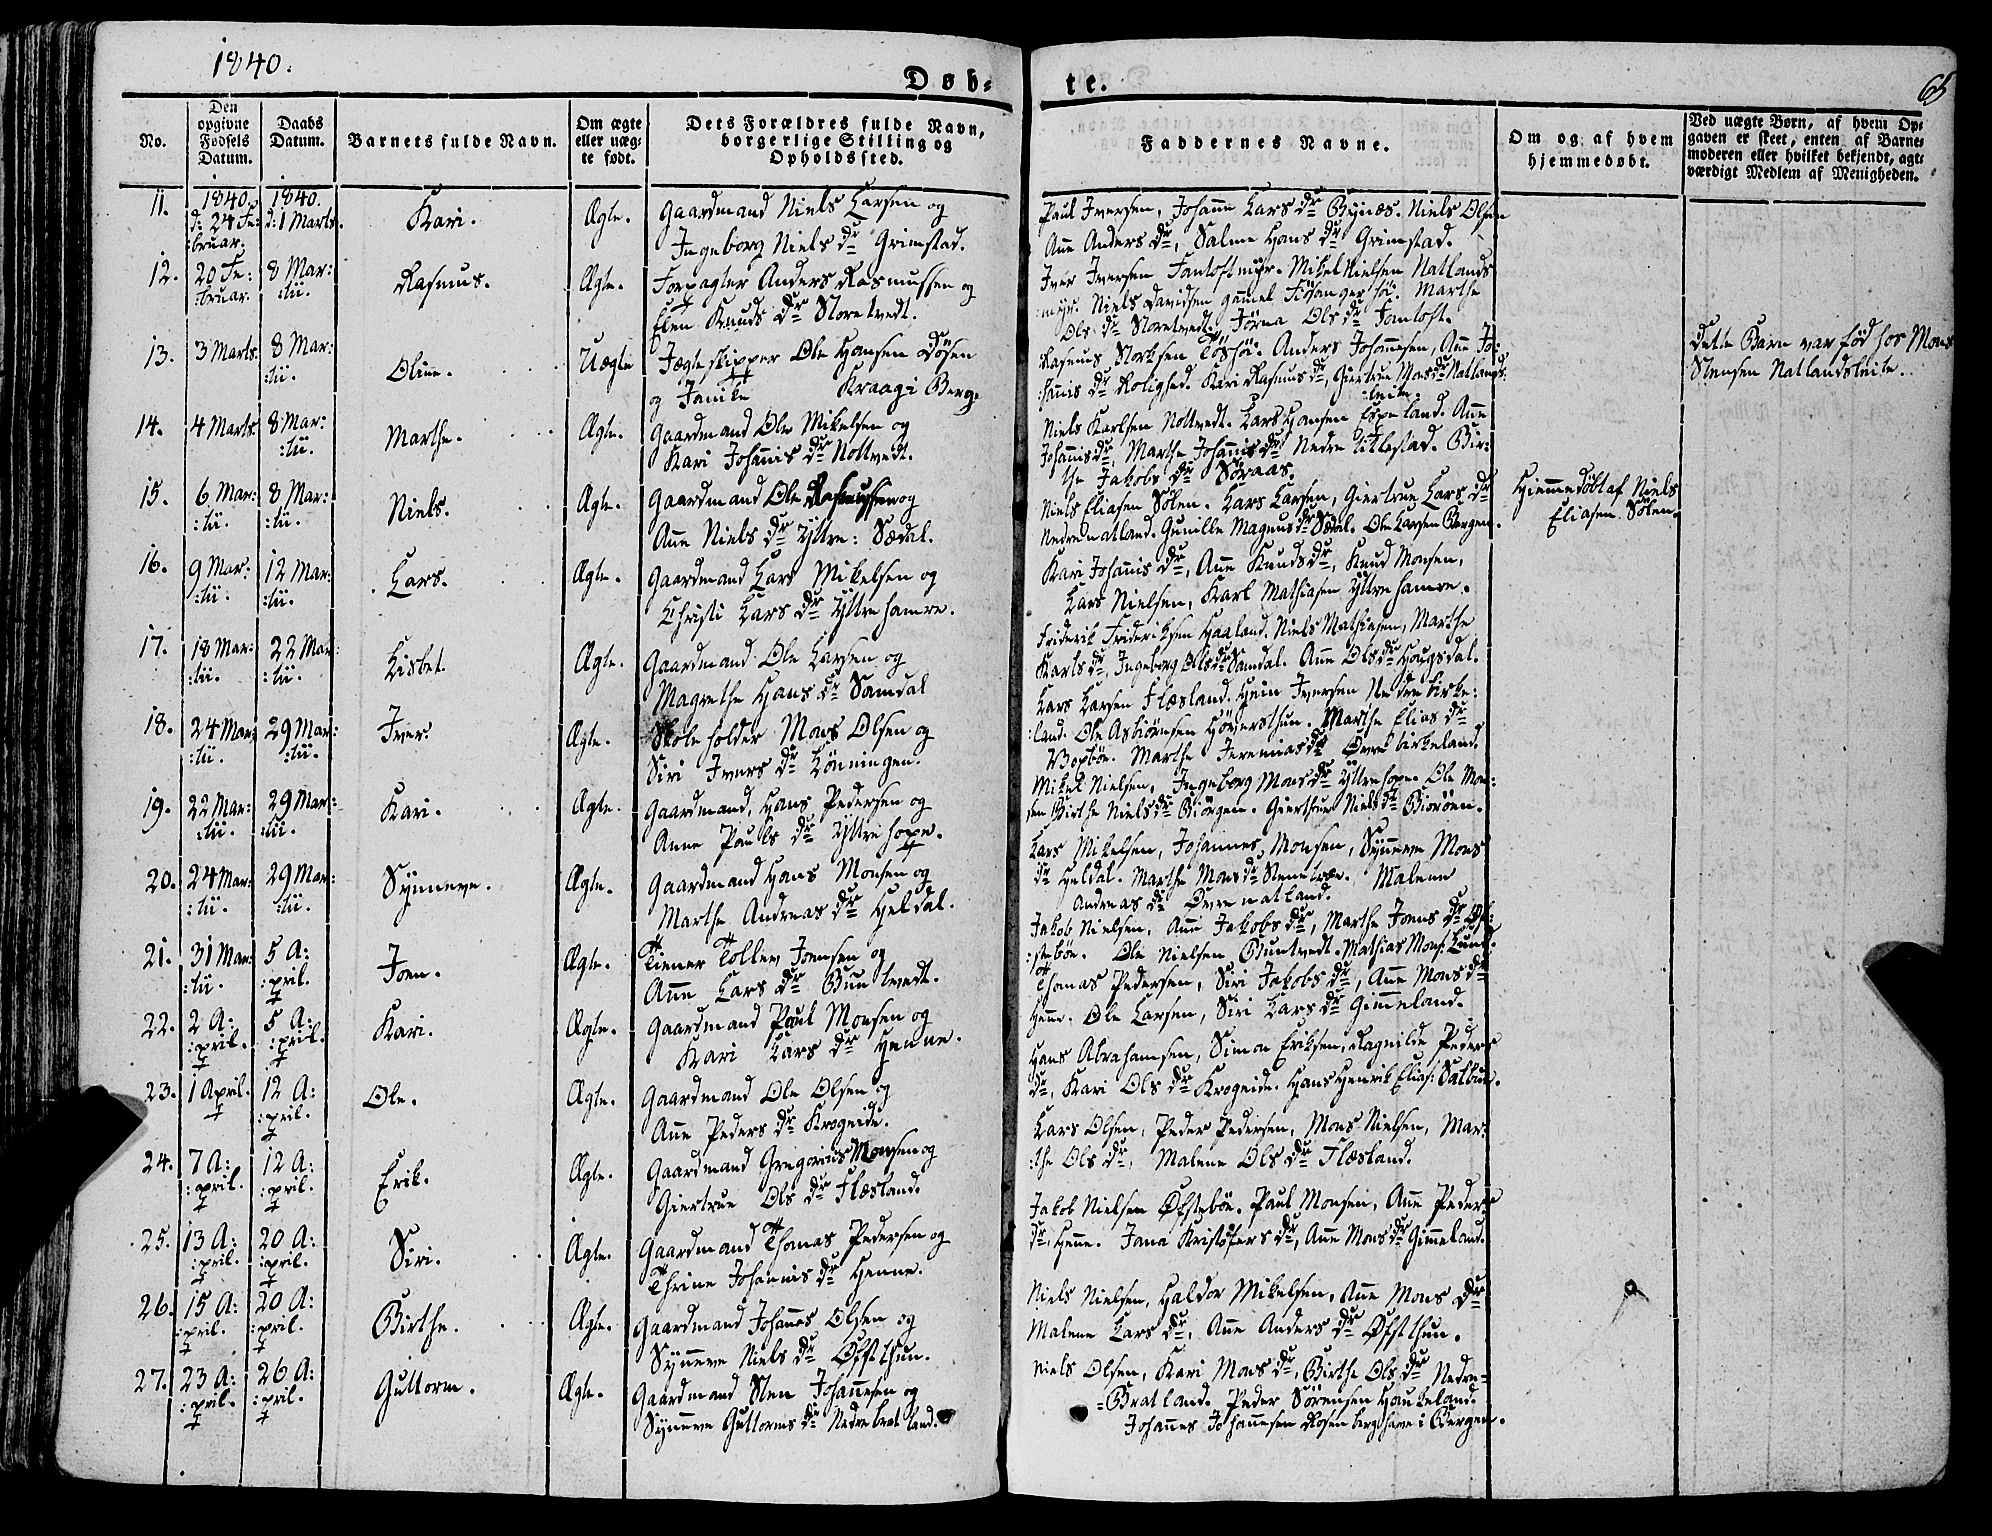 1840.
Døb=
te.
65
No.
Den
opgivne
Fødsels
Datum.
Daabs
Datum.
Barnets fulde Navn.
Om ægte
eller uæg=
te født.
Dets Forældres fulde Navn,
borgerlige Stilling og
Opholdssted.
Faddernes Navne.
Om og af hvem
hjemmedøbt.
Ved uægte Børn, af hvem Op=
gaven er skeet, enten af Barne=
moderen eller hvilket bekjendt, agt=
værdigt Medlem af Menigheden.
11.
1840.
d: 24 Fe:
:bruar.
1840.
d: 1 Marts.
Kari.
Ægte.
Gaardmand Niels Larsen og
Ingeborg Niels dr Grimstad.
Paul Iversen, Johanne Lars dr Bynæs. Niels Olsen
Anne Anders dr, Salme Hans dr Grimstad.
12.
20 Fe:
:bruar.
8 Mar:
:tii.
Rasmus.
Ægte.
Forpagter Anders Rasmussen og
Elen Knuds dr Storetvedt.
Iver Iversen Fantoftmyr. Mikel Nielsen Natlands
:myr. Niels Davidsen gammel Fiøsangerhøi. Marthe
Ols dr Storetvedt. Jørna Ols dr Fantoft.
13.
3 Marts.
8 Mar:
:tii.
Oline.
Uægte
Jægteskipper Ole Hansen Døsen
og Janike Kraagi Berg.
Rasmus Storksen Tøshøi. Anders Johannesen, Anne Jo:
:hanis dr Rolighed. Kari Rasmus dr, Giertrue Mons dr Natlands:
:leite.
Dette Barn var fød hos Mons
Stensen Natlandsleite.
14.
4 Marts.
8 Mar:
:tii.
Marthe.
Ægte.
Gaardmand Ole Mikelsen og
Kari Johannis dr Nottvedt.
Niels Karlsen Nottvedt. Lars Hansen Espeland. Anne
Johannis dr, Marthe Johannis dr Nedre Titlestad. Bir:
the Jakobs dr Søraas.
15.
6 Mar:
:tii.
8 Mar:
:tii.
Niels.
Ægte.
Gaardmand Ole Rasmussen og
Anne Niels dr Yttre: Sædal.
Niels Eliasen Sølen. Lars Larsen, Giertrue Lars dr
Nedrenatland. Gunille Magnus dr Sædal. Ole Larsen Bergen.
Hiemmedøbt af Niels
Eliasen Sølen.
16.
9 Mar:
:tii.
12 Mar:
:tii.
Lars.
Ægte.
Gaardmand Lars Mikelsen og
Christi Lars dr Yttrehamre.
Kari Johannis dr, Anne Knuds dr, Knud Monsen,
Lars Nielsen, Karl Mathiasen Yttrehamre.
17.
18 Mar:
:tii.
22 Mar:
:tii.
Lisbet.
Ægte.
Gaardmand Ole Larsen og
Magrethe Hans dr Samdal
Friderik Frideriksen Haaland. Niels Mathiasen, Marthe
Karls dr, Ingeborg Ols dr Samdal. Anne Ols dr Hougsdal.
18.
24 Mar:
:tii.
29 Mar:
:tii.
Iver.
Ægte.
Skoleholder Mons Olsen og
Siri Ivers dr Lønningen.
Lars Larsen Flæsland. Hein Iversen Nedrebirke:
:land. Ole Asbiørnsen Høversthun. Marthe Elias dr
Vopbøe. Marthe Jeremias dr Øvrebirkeland.
19.
22 Mar:
:tii.
29 Mar:
:tii.
Kari.
Ægte.
Gaardmand, Hans Pedersen og
Anne Pauls dr Yttrehope.
Mikel Nielsen, Ingeborg Mons dr Yttrehope. Ole Mon:
sen Birthe Niels dr Biørgen. Gierthrue Niels dr Biorøen.
20.
24 Mar:
:tii.
29 Mar:
:tii.
Synneve.
Ægte.
Gaardmand Hans Monsen og
Marthe Andreas dr Heldal.
Lars Mikelsen, Johannes Monsen, Synneve Mons
dr Heldal. Marthe Mons dr Stentræ. Malene
Andreas dr Øvrenatland.
21.
31 Mar:
:tii.
5 A:
:pril.
Joen.
Ægte.
Tiener Tollev Joensen og
Anne Lars dr Buntvedt.
Jakob Nielsen, Anne Jakobs dr, Marthe Joens dr Øf:
:stebøe. Ole Nielsen Buntvedt. Mathias Mons: Lund.
22.
2 A:
:pril.
5 A:
:pril.
Kari.
Ægte.
Gaardmand Paul Monsen og
Kari Lars dr Henne.
Thomas Pedersen, Siri Jakobs dr, Anne Mons dr
Henne. Ole Larsen, Siri Lars dr Gimmeland.
23.
1 April.
12 A:
:pril.
Ole.
Ægte.
Gaardmand Ole Olsen og
Anne Peders dr Krogeide.
Hans Abrahamsen, Simon Eriksen, Ragnilde Peders
dr, Kari Ols dr Krogeide. Hans Henrik Elias: Salbue.
24.
7 A:
:pril.
12 A:
:pril.
Erik.
Ægte.
Gaardmand Gregorius Monsen og
Giertrue Ols dr Flæsland.
Lars Olsen, Peder Pedersen, Mons Nielsen, Mar:
:the Ols dr, Malene Ols dr Flæsland.
25.
13 A:
:pril.
20 A:
:pril.
Siri.
Ægte.
Gaardmand Thomas Pedersen og
Thrine Johannis dr Henne.
Jakob Nielsen Øfstebøe. Paul Monsen, Anne Peders
dr, Henne. Jana Kristofers dr, Anne Mons dr Gimmeland.
26.
15 A:
:pril.
20 A:
:pril.
Birthe.
Ægte.
Gaardmand Johannes Olsen og
Synneve Niels dr Øfsthun.
Niels Nielsen, Haldor Mikelsen, Anne Mons dr
Malene Lars dr, Anne Anders dr Øfsthun.
27.
23 A:
:pril.
26 A:
:pril.
Guttorm.
Ægte.
Gaardmand Sten Johannesen og
Synneve Guttorms dr Nedrebratland.
Niels Olsen, Kari Mons dr, Birthe Ols dr Nedre=
=Bratland. Peder Sørensen Haukeland.
Johannes Johannesen Rosenbergshave i Bergen.